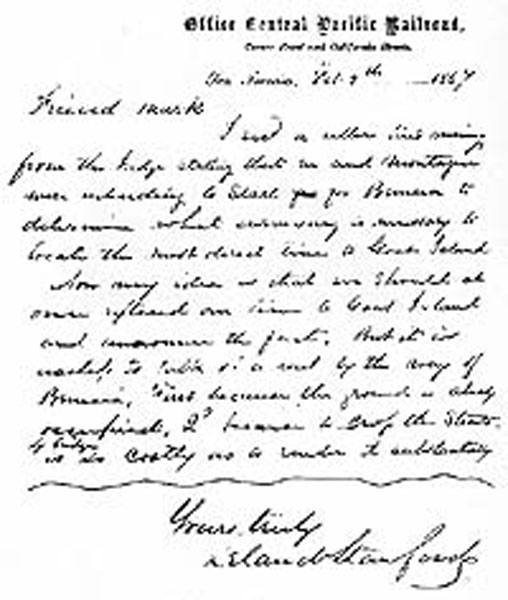 Office Central Pacific Railroad,
Corner Front and California Streets.
San Francisco, Feb. 9th 1867
Friend Mark
I rec'd a letter this morning
from the Judge stating that he and Montague
were intending to start for Benicia to
determine what surveying is necessary to
locate the most direct line to Goat Island
Now my idea is that we should at
once extend our line to Goat Island
and announce the fact. But it is
to talk of a road by the way of
Benicia, First because the ground is already
occupied, 2d because to cross the Straits
by bridge
is so costly as to render it substantially
Yours truly
Leland Stanford